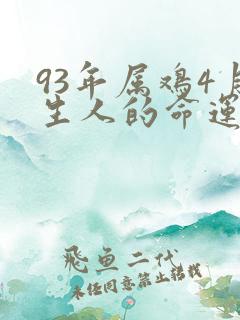 93年属鸡4
生人的命运
飛鱼二代
未经同意禁止转载